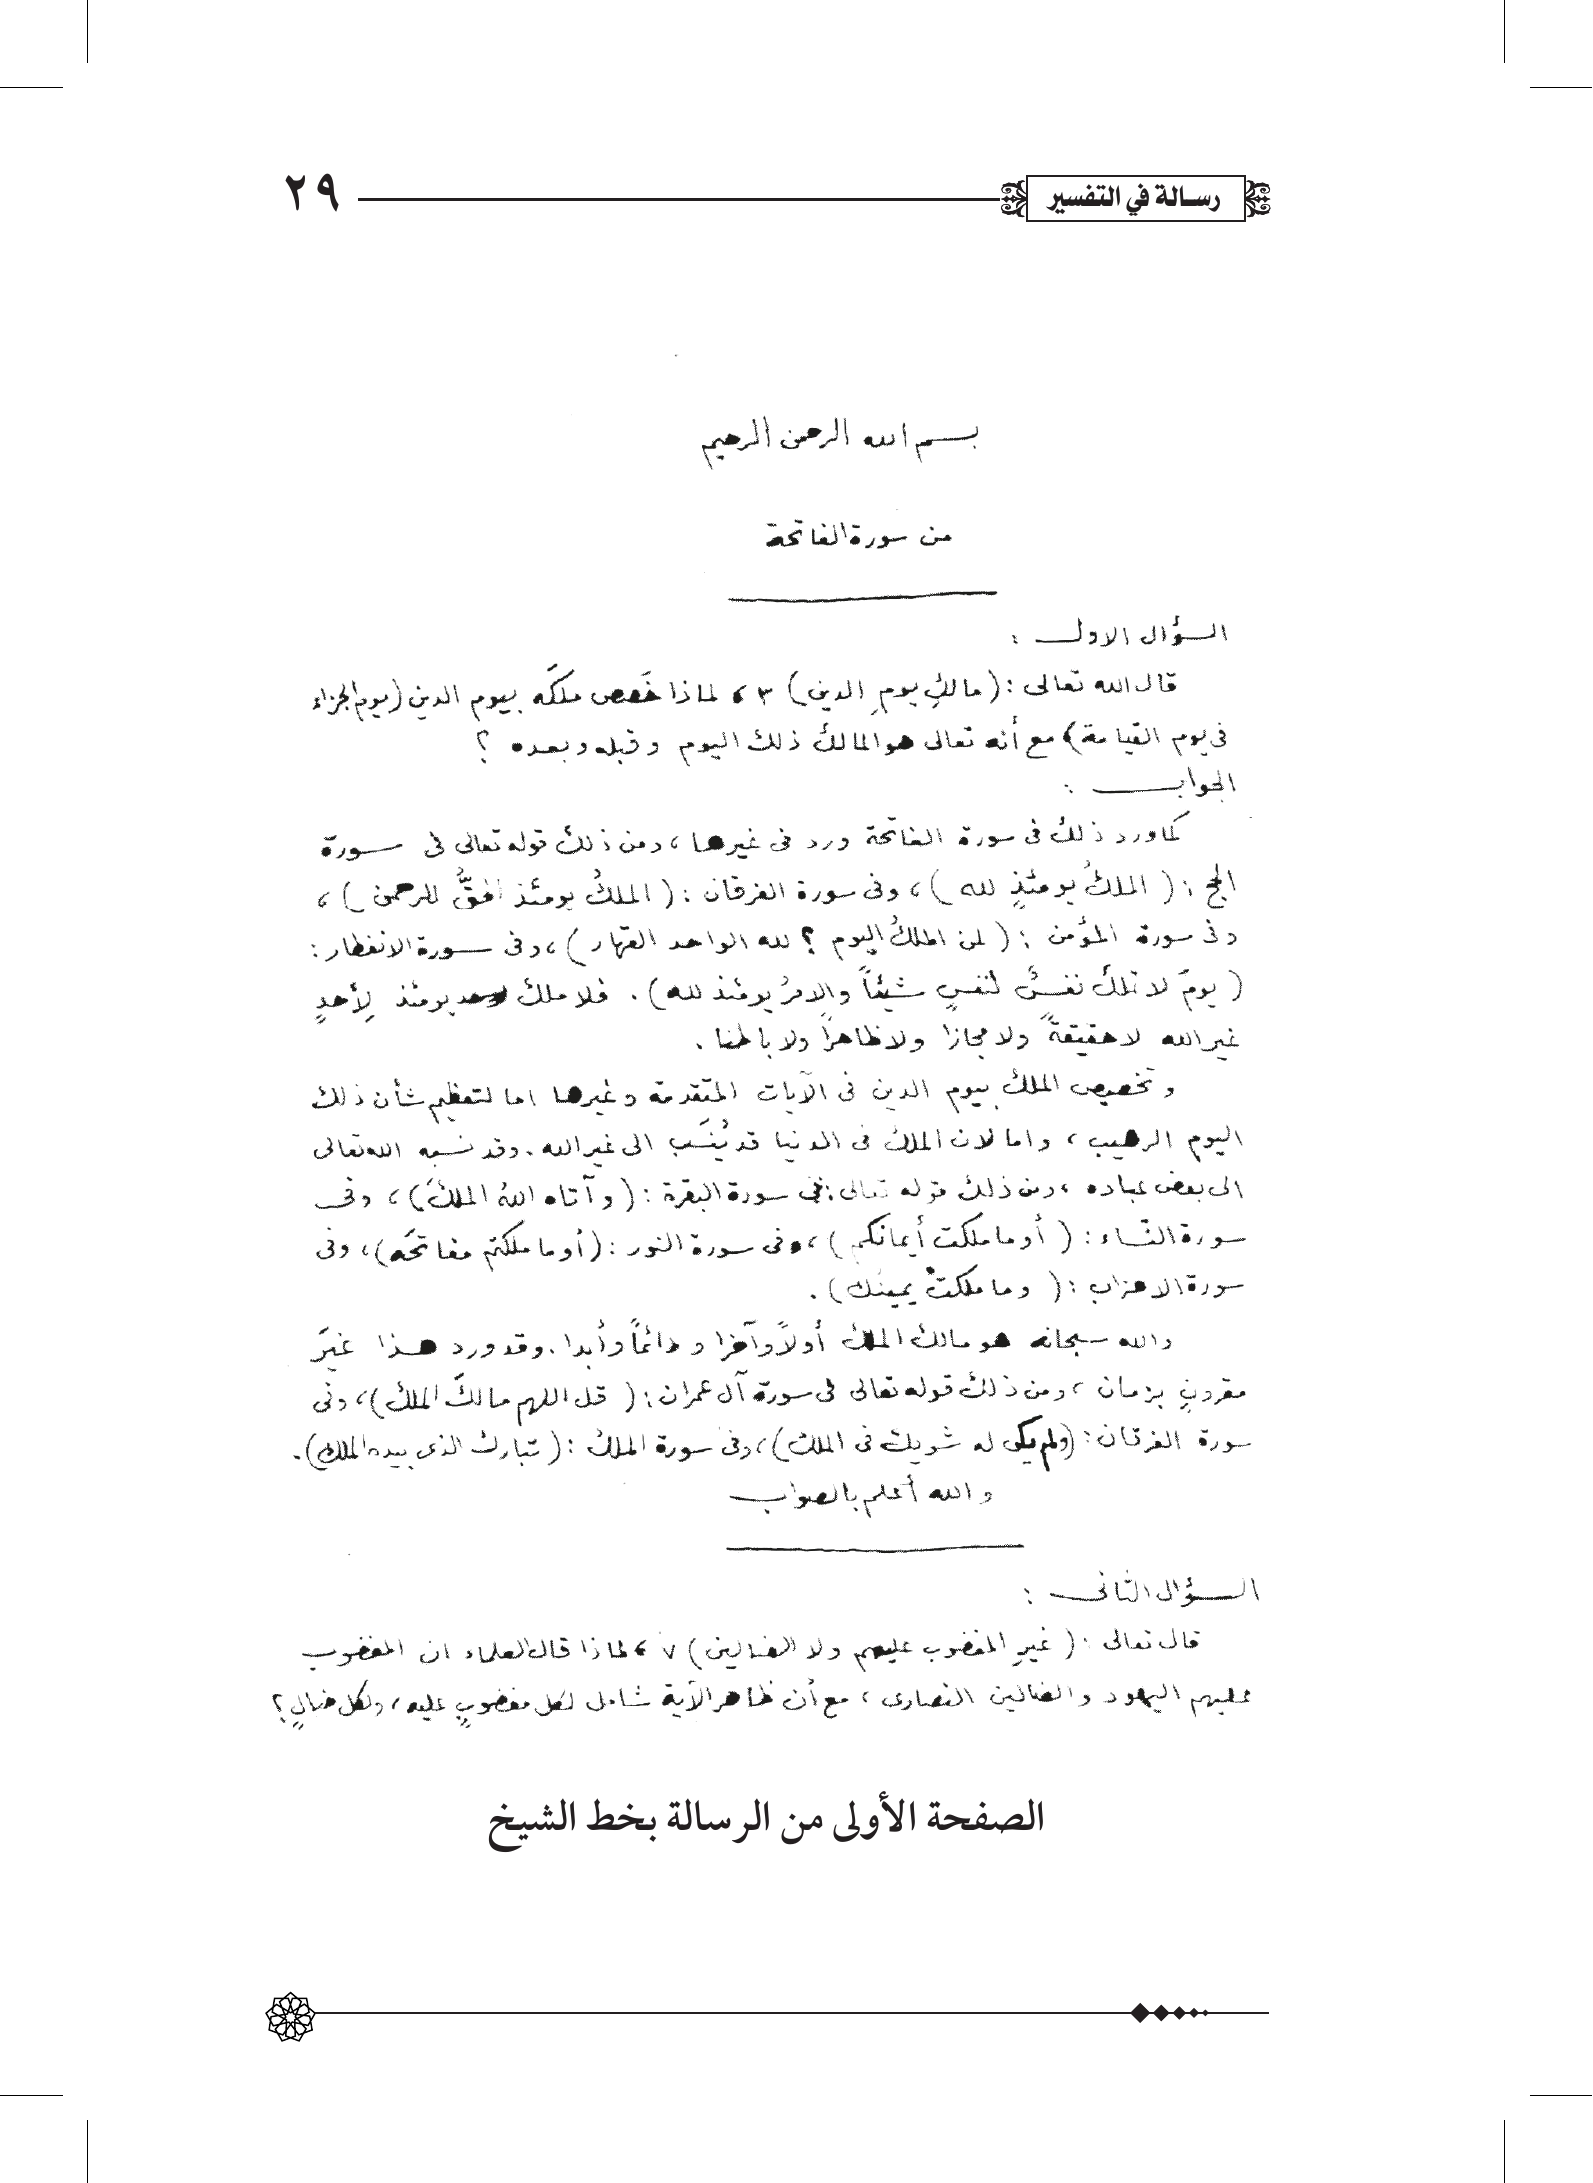 رسالة في التفسير
٢٩
بسم الله الرحمن الرحيم
من سورة الفاتحة
السؤال الاول :
قال الله تعالى : (مالكِ يومِ الدين) ٣ ، لماذا خَصص ملكَه بيوم الدين (يوم الجزاء
في يوم القيامة) مع أنه تعالى هو المالك ذلك اليوم وقبله وبعده ؟
الجواب :
كما ورد ذلك في سورة الفاتحة ورد في غيرها ، ومن ذلك قوله تعالى في سورة
الحج : ( الملكُ يومئذٍ لله ) ، وفي سورة الفرقان : ( الملكُ يومئذ الحقُّ للرحمن ) ،
وفي سورة المؤمن : ( لمن الملكُ اليوم ؟ لله الواحد القهار ) ، وفي سورة الانفطار :
( يومَ لا تملك نفسٌ لنفسٍ شيئاً والامرُ يومئذ لله ) . فلا ملك يومئذ لِأحدٍ
غير الله لا حقيقةً ولا مجازا ولا ظاهراً ولا باطنا .
وتخصيص الملك بيوم الدين في الآيات المتقدمة وغيرها اما لتعظيم شأن ذلك
اليوم الرهيب ، واما لان الملك في الدنيا قد يُنسَب الى غير الله . وقد نسبه الله تعالى
الى بعض عباده ، ومن ذلك قوله تعالى في سورة البقرة : ( وآتاه اللهُ الملكَ ) ، وفي
سورة النساء : ( أو ما ملكت أيمانكم ) ، وفي سورة النور : ( أو ما ملكتم مفاتحَه ) ، وفي
سورة الاحزاب : ( وما ملكتْ يمينك ) .
والله سبحانه هو مالك الملك أولاً وآخرا ودائماً وأبدا . وقد ورد هذا غيرَ
مقرونٍ بزمان ، ومن ذلك قوله تعالى في سورة آل عمران : ( قل اللهم مالكَ الملك ) ، وفي
سورة الفرقان : (ولم يكن له شريك في الملك ) ، وفي سورة الملك : ( تبارك الذي بيده الملك ) .
والله أعلم بالصواب
السؤال الثاني :
قال تعالى : ( غيرِ المغضوب عليهم ولا الضالين ) ٧ ، لماذا قال العلماء ان المغضوب
عليهم اليهود والضالين النصارى ، مع أن ظاهر الآية شامل لكل مغضوبٍ عليه ، ولكل ضالٍ ؟
الصفحة الأولى من الرسالة بخط الشيخ